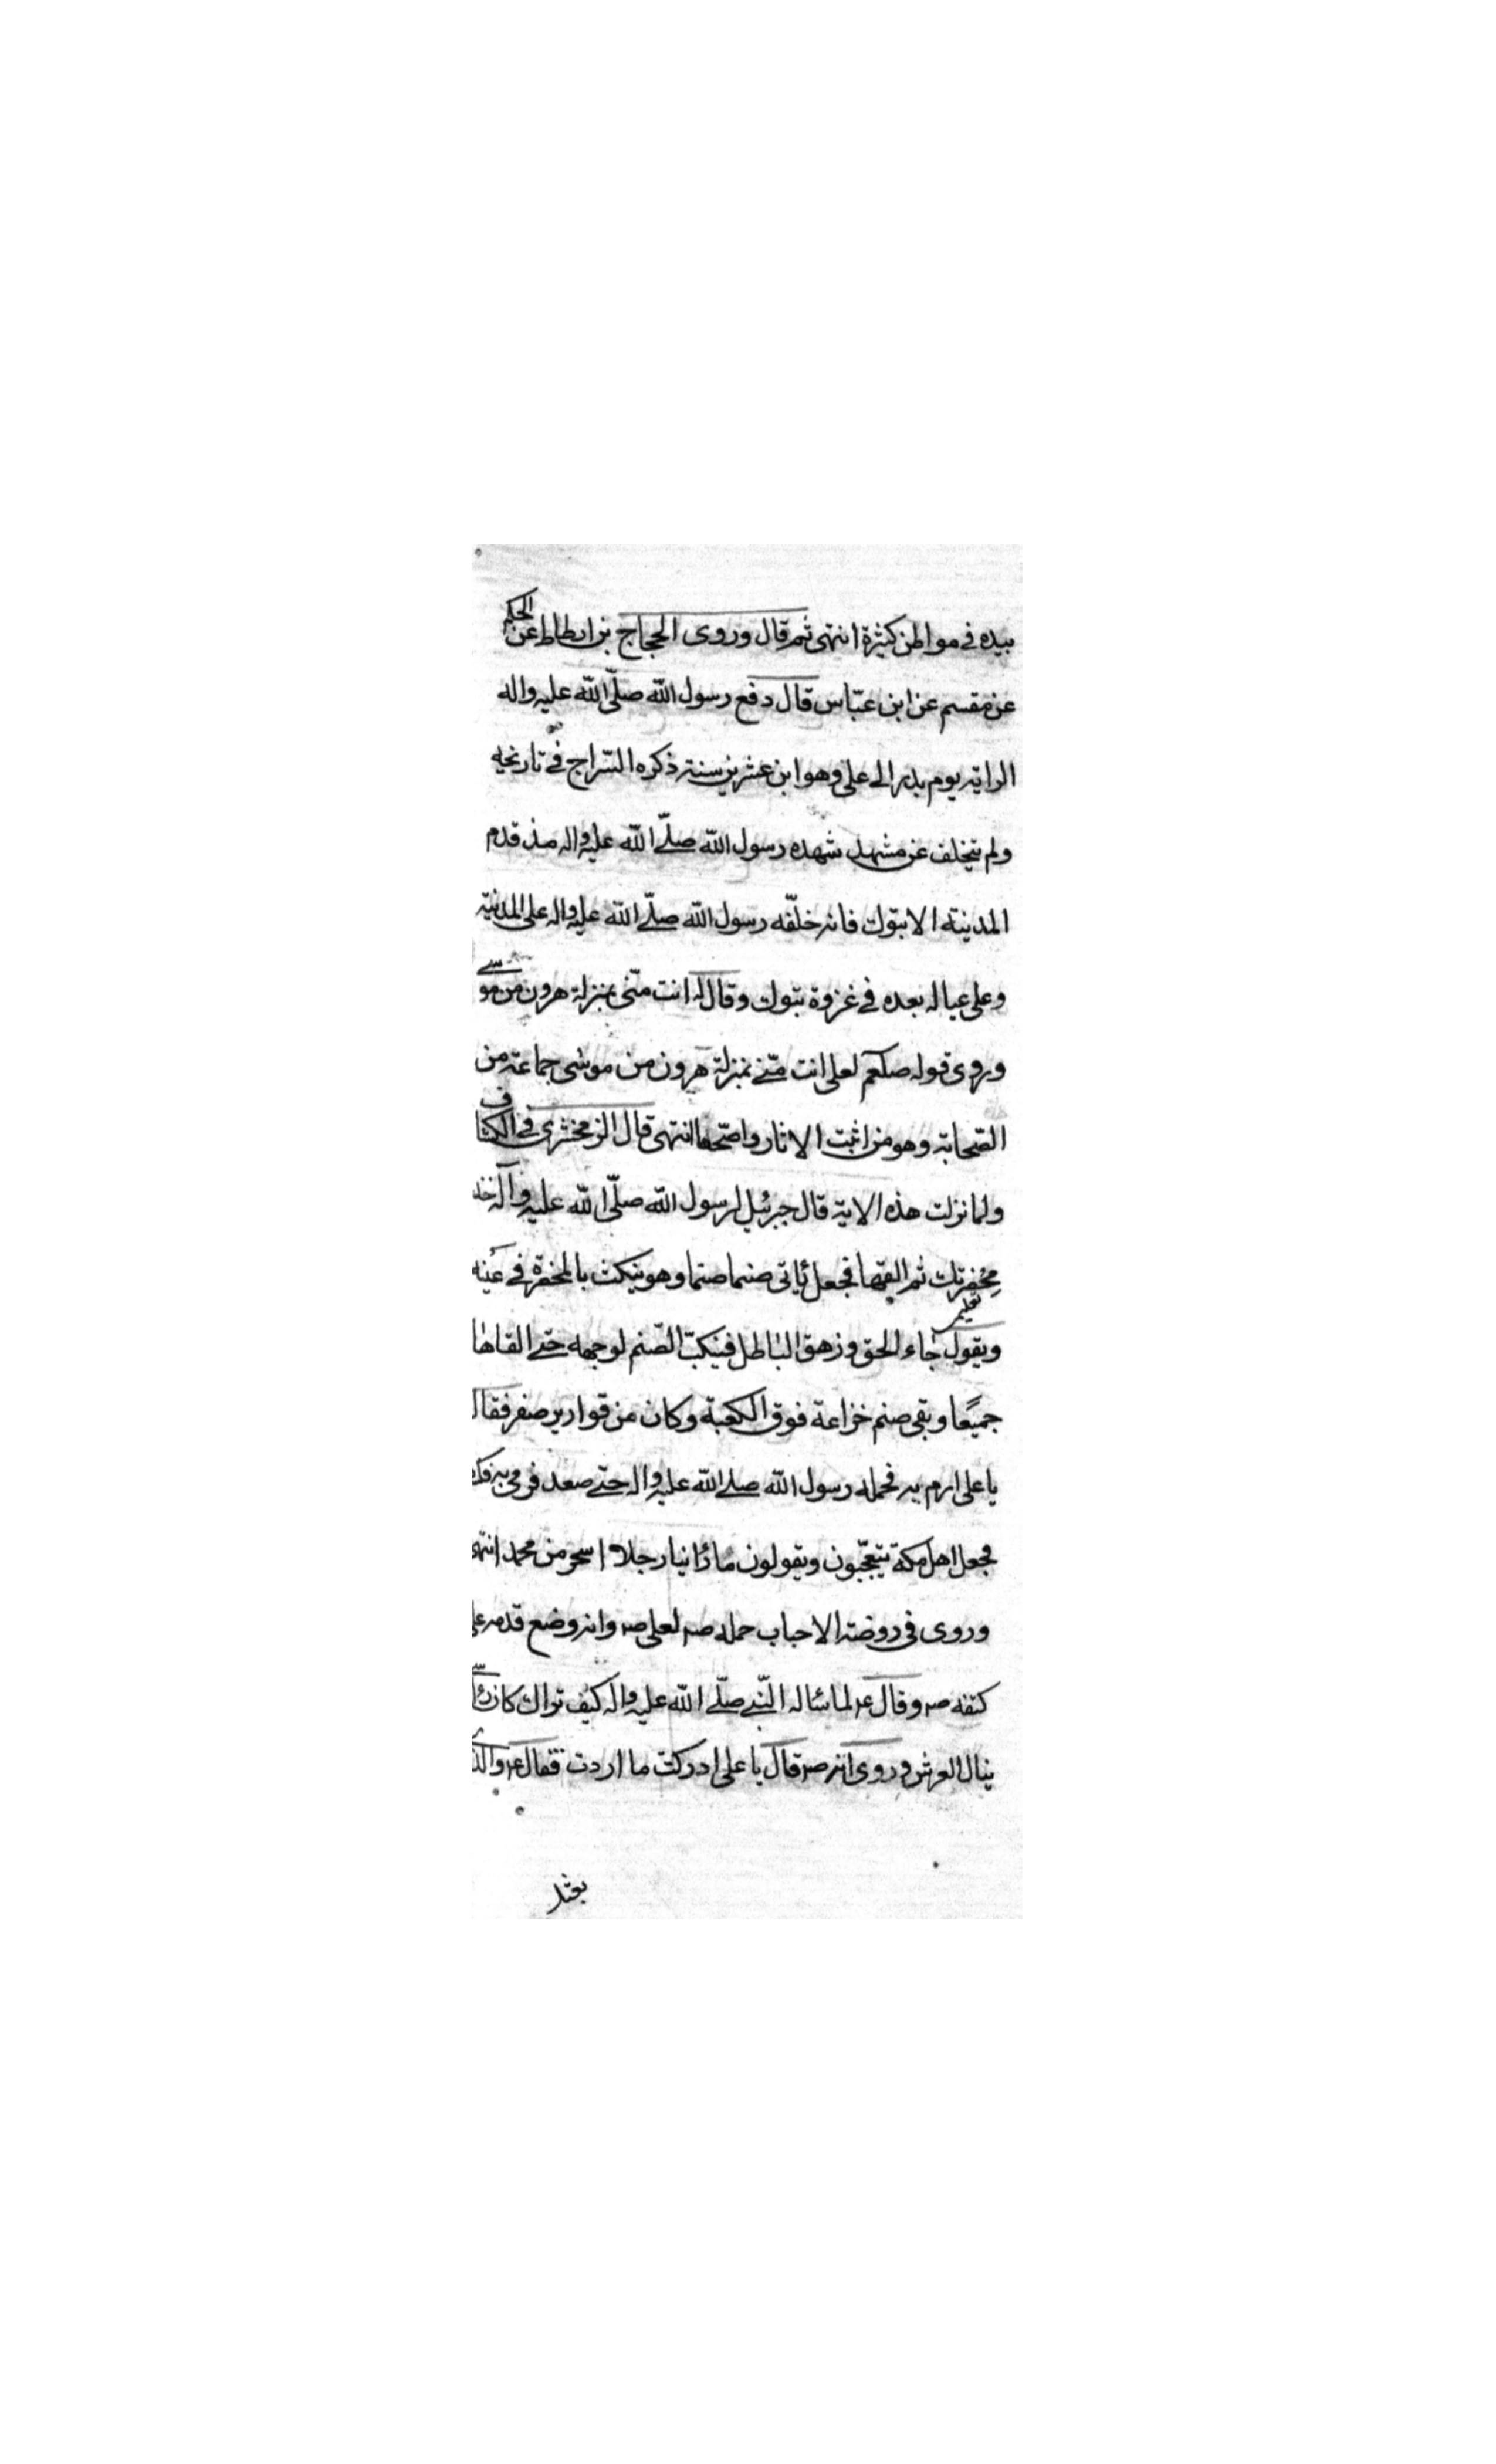 بيده في مواطن كثيرة انتهى ثم قال وروى الحجاج بن ارطاط عن الحكم
عن مقسم عن ابن عبّاس قال دفع رسول الله صلّى الله عليه واله
الراية يوم بدر الى على وهو ابن عشرين سنة ذكره السّراج في تاريخه
ولم يتخلف عن مشهد شهده رسول الله صلّى الله عليه واله مذ قدم
المدينة الا تبوك فانه خلّفه رسول الله صلّى الله عليه واله على المدينة
وعلى عياله بعده في غزوة تبوك وقال له انت منّى بمنزلة هرون من موسى
وروى قوله صلعم لعلى انت منّى بمنزلة هرون من موسى جماعة من
الصّحابة وهو من اثبت الاثار واصحّها انتهى قال الزمخشرى في الكشاف
ولما نزلت هذه الاية قال جبرئيل لرسول الله صلّى الله عليه وآله خذ
مِخْصَرتك ثم القها فجعل يأتى صنما صنما وهو ينكت بالمخصرة في عينه
ويقول جاء الحق وزهق الباطل فينكبّ الصّنم لوجهه حتى القاها
جميعًا وبقى صنم خزاعة فوق الكعبة وكان من قوارير صفر فقال
يا على ارم به فحمله رسول الله صلى الله عليه واله حتّى صعد فرمى به فكسره
فجعل اهل مكة يتعجّبون ويقولون ما رأينا رجلا اسحر من محمد انتهى
وروى في روضة الاحباب حمله صم لعلى ص وانه وضع قدمه على
كتفه صم وقال ع لما سأله النّبى صلّى الله عليه واله كيف تراك كان رأسى
ينال العرش وروى انه صم قال يا على ادركت ما اردت فقال ع والذى
بعثك